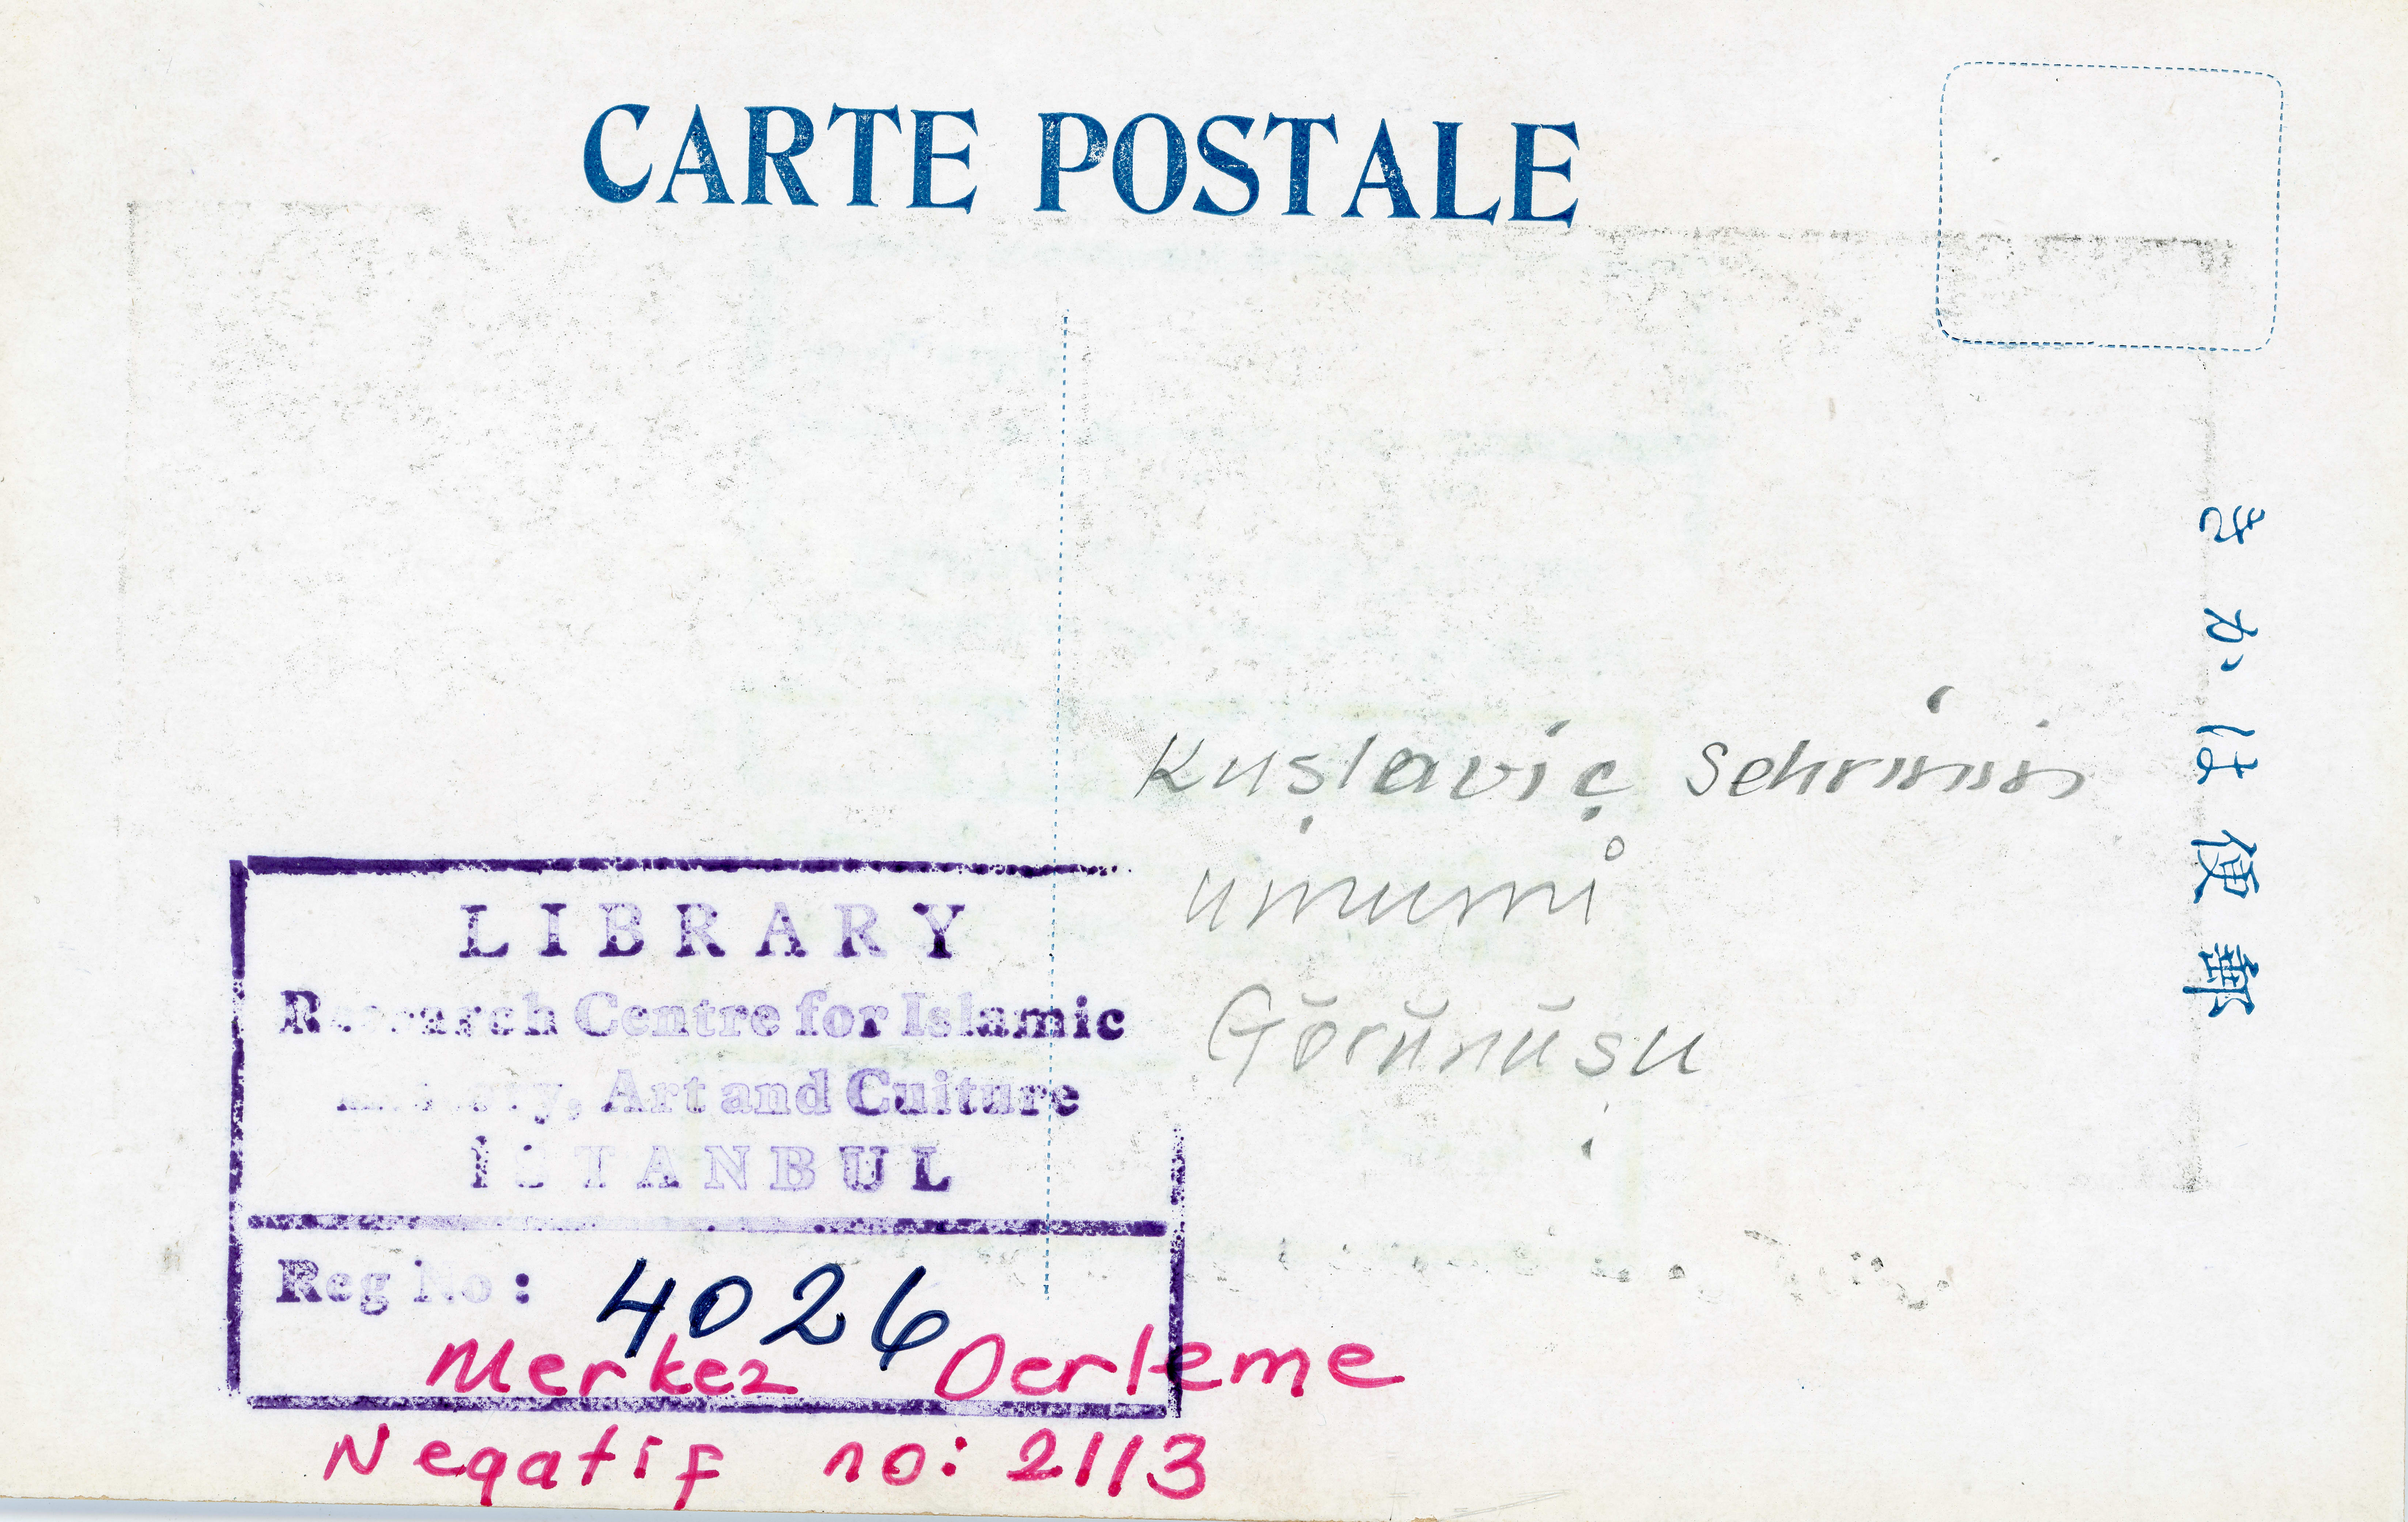 CARTE POSTALE
きかは便郵
Kuşlaviç Sehrinin
umumi
Görünüşu
LIBRARY
Research Centre for Islamic
History, Art and Culture
ISTANBUL
Reg No: 4026
Merkez Derleme
Negatif no: 2113